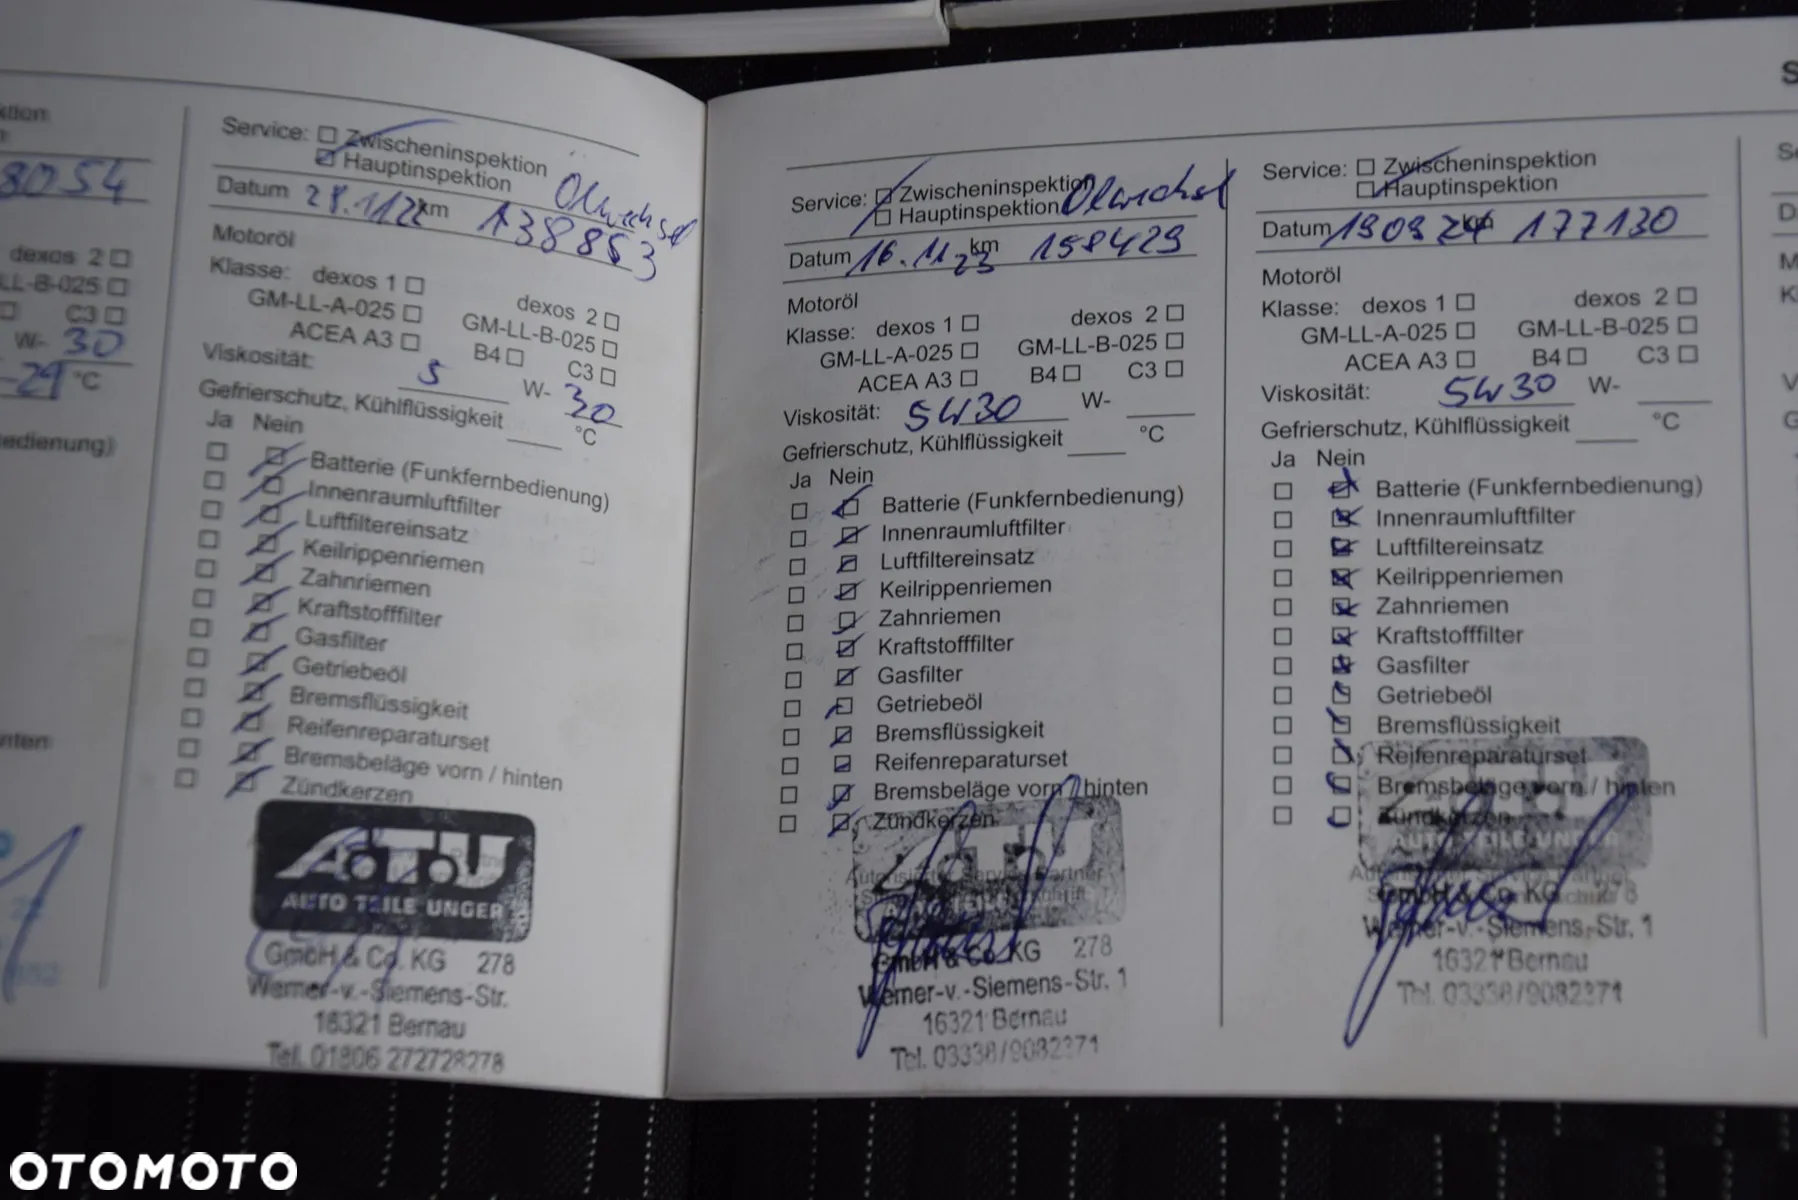 8054
dexos 2
LL-B-025
C3
W- 30
-29 °C
edienung)
nten
Service: Zwischeninspektion
Hauptinspektion
Ölwechsel
Datum 28.11.22 km 138853
Motoröl
Klasse: dexos 1 dexos 2
GM-LL-A-025 GM-LL-B-025
ACEA A3 B4 C3
Viskosität: 5 W- 30
Gefrierschutz, Kühlflüssigkeit °C
Ja Nein
Batterie (Funkfernbedienung)
Innenraumluftfilter
Luftfiltereinsatz
Keilrippenriemen
Zahnriemen
Kraftstofffilter
Gasfilter
Getriebeöl
Bremsflüssigkeit
Reifenreparaturset
Bremsbeläge vorn / hinten
Zündkerzen
A.T.U
AUTO TEILE UNGER
GmbH & Co. KG 278
Werner-v.-Siemens-Str.
16321 Bernau
Tel. 01806 272728278
Service: Zwischeninspektion
Hauptinspektion Ölwechsel
Datum 16.11.23 km 158429
Motoröl
Klasse: dexos 1 dexos 2
GM-LL-A-025 GM-LL-B-025
ACEA A3 B4 C3
Viskosität: 5W30 W-
Gefrierschutz, Kühlflüssigkeit °C
Ja Nein
Batterie (Funkfernbedienung)
Innenraumluftfilter
Luftfiltereinsatz
Keilrippenriemen
Zahnriemen
Kraftstofffilter
Gasfilter
Getriebeöl
Bremsflüssigkeit
Reifenreparaturset
Bremsbeläge vorn / hinten
Zündkerzen
A.T.U
Autorisierter Service Partner
GmbH & Co. KG 278
Werner-v.-Siemens-Str. 1
16321 Bernau
Tel. 03338/9082371
S
Service: Zwischeninspektion
Hauptinspektion
Datum 19 09 24 km 177130
Motoröl
Klasse: dexos 1 dexos 2
GM-LL-A-025 GM-LL-B-025
ACEA A3 B4 C3
Viskosität: 5W30 W-
Gefrierschutz, Kühlflüssigkeit °C
Ja Nein
Batterie (Funkfernbedienung)
Innenraumluftfilter
Luftfiltereinsatz
Keilrippenriemen
Zahnriemen
Kraftstofffilter
Gasfilter
Getriebeöl
Bremsflüssigkeit
Reifenreparaturset
Bremsbeläge vorn / hinten
Zündkerzen
AUTO TEILE UNGER
Autorisierter Service Partner
GmbH & Co. KG 278
Werner-v.-Siemens-Str. 1
16321 Bernau
Tel. 03338/9082371
OTOMOTO